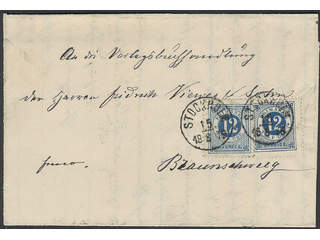 An die Verlagsbuchhandlung
der Herren Friedrich Vieweg & Sohn
franco.
Braunschweig
STOCKHOLM
15
12
12